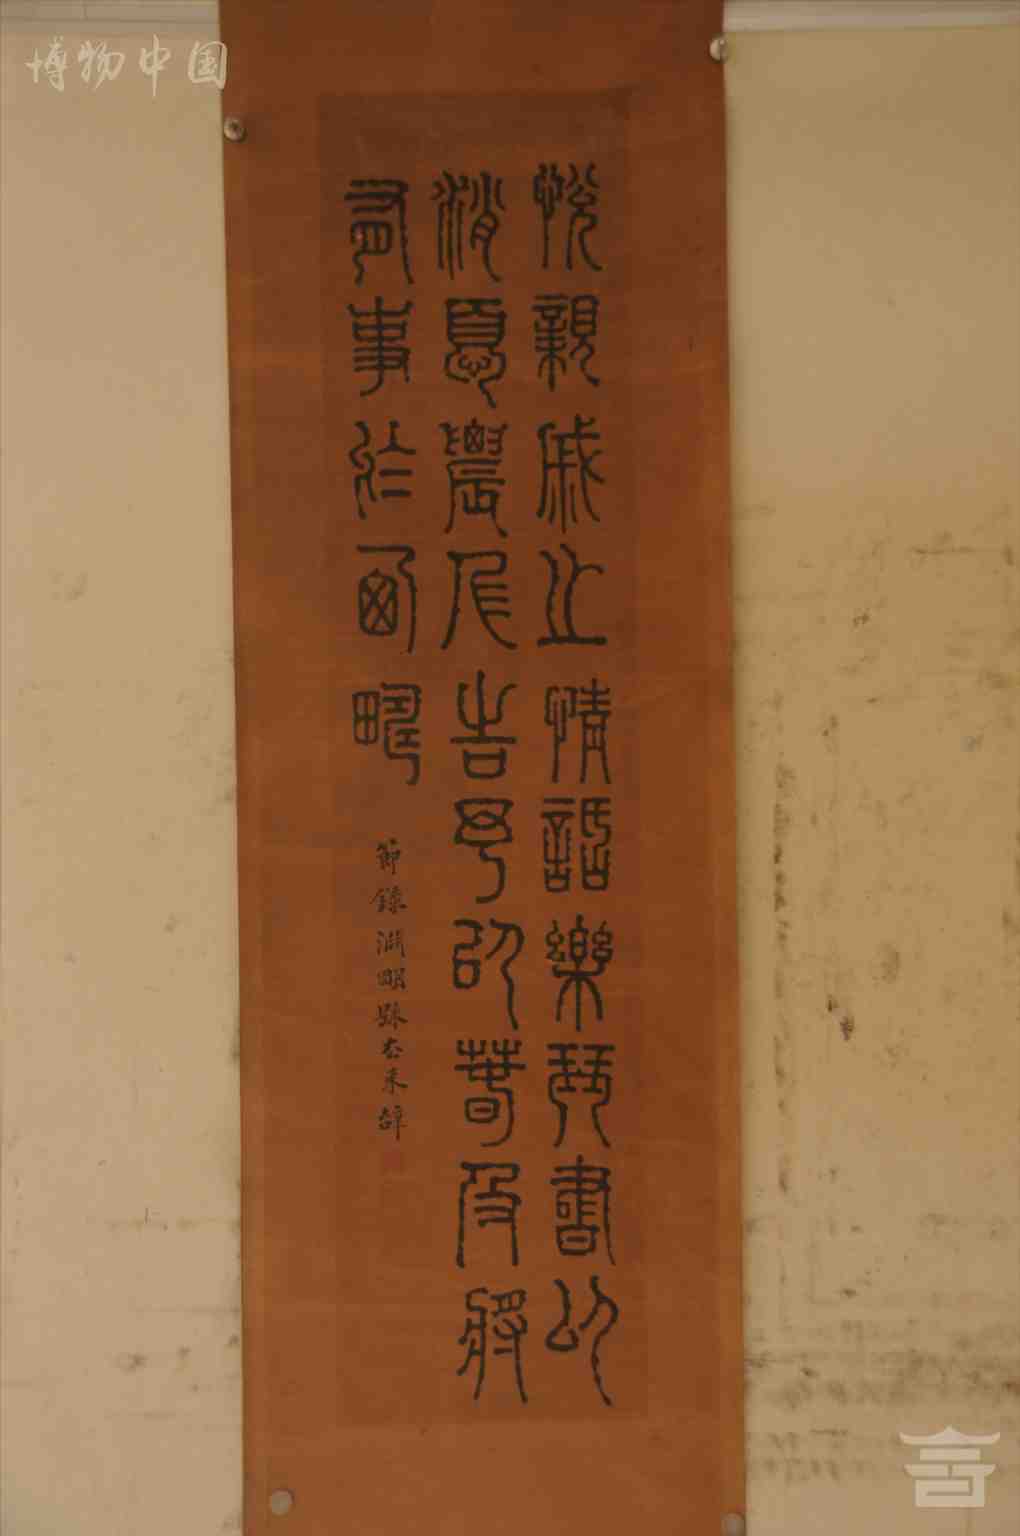 博物中国
悅親戚之情話樂琴書以
消憂農人告予以春及將
有事於西疇
節錄淵明歸去來辭